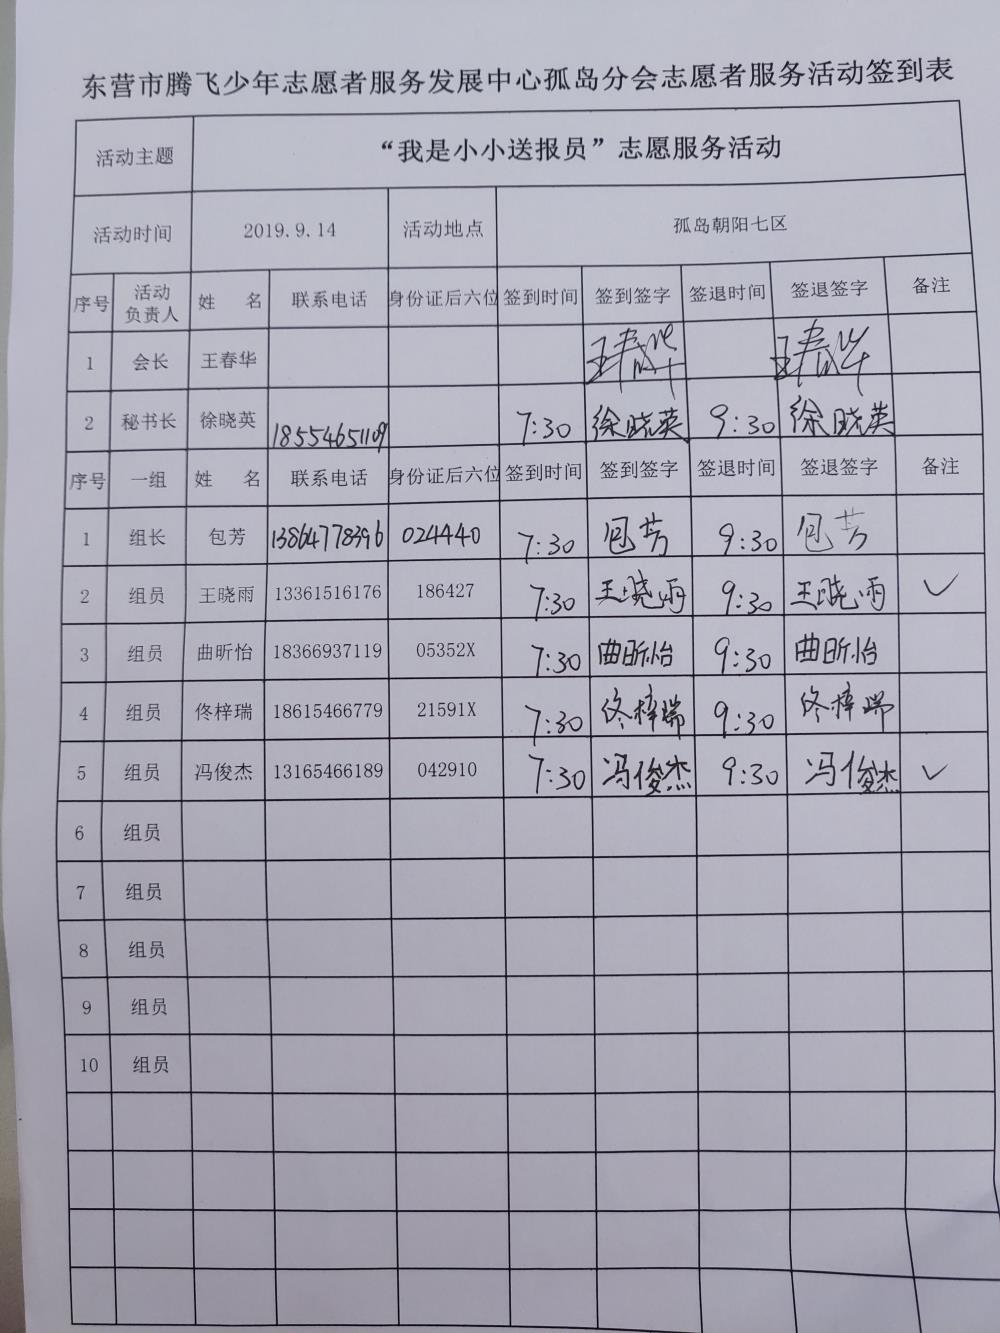 东营市腾飞少年志愿者服务发展中心孤岛分会志愿者服务活动签到表
活动主题 “我是小小送报员”志愿服务活动
活动时间 2019.9.14 活动地点 孤岛朝阳七区
序号 活动负责人 姓 名 联系电话 身份证后六位 签到时间 签到签字 签退时间 签退签字 备注
1 会长 王春华 王春华 王春华
2 秘书长 徐晓英 18554651109 7:30 徐晓英 9:30 徐晓英
序号 一组 姓 名 联系电话 身份证后六位 签到时间 签到签字 签退时间 签退签字 备注
1 组长 包芳 13864778396 024440 7:30 包芳 9:30 包芳
2 组员 王晓雨 13361516176 186427 7:30 王晓雨 9:30 王晓雨 ✓
3 组员 曲昕怡 18366937119 05352X 7:30 曲昕怡 9:30 曲昕怡
4 组员 佟梓瑞 18615466779 21591X 7:30 佟梓瑞 9:30 佟梓瑞
5 组员 冯俊杰 13165466189 042910 7:30 冯俊杰 9:30 冯俊杰 ✓
6 组员
7 组员
8 组员
9 组员
10 组员